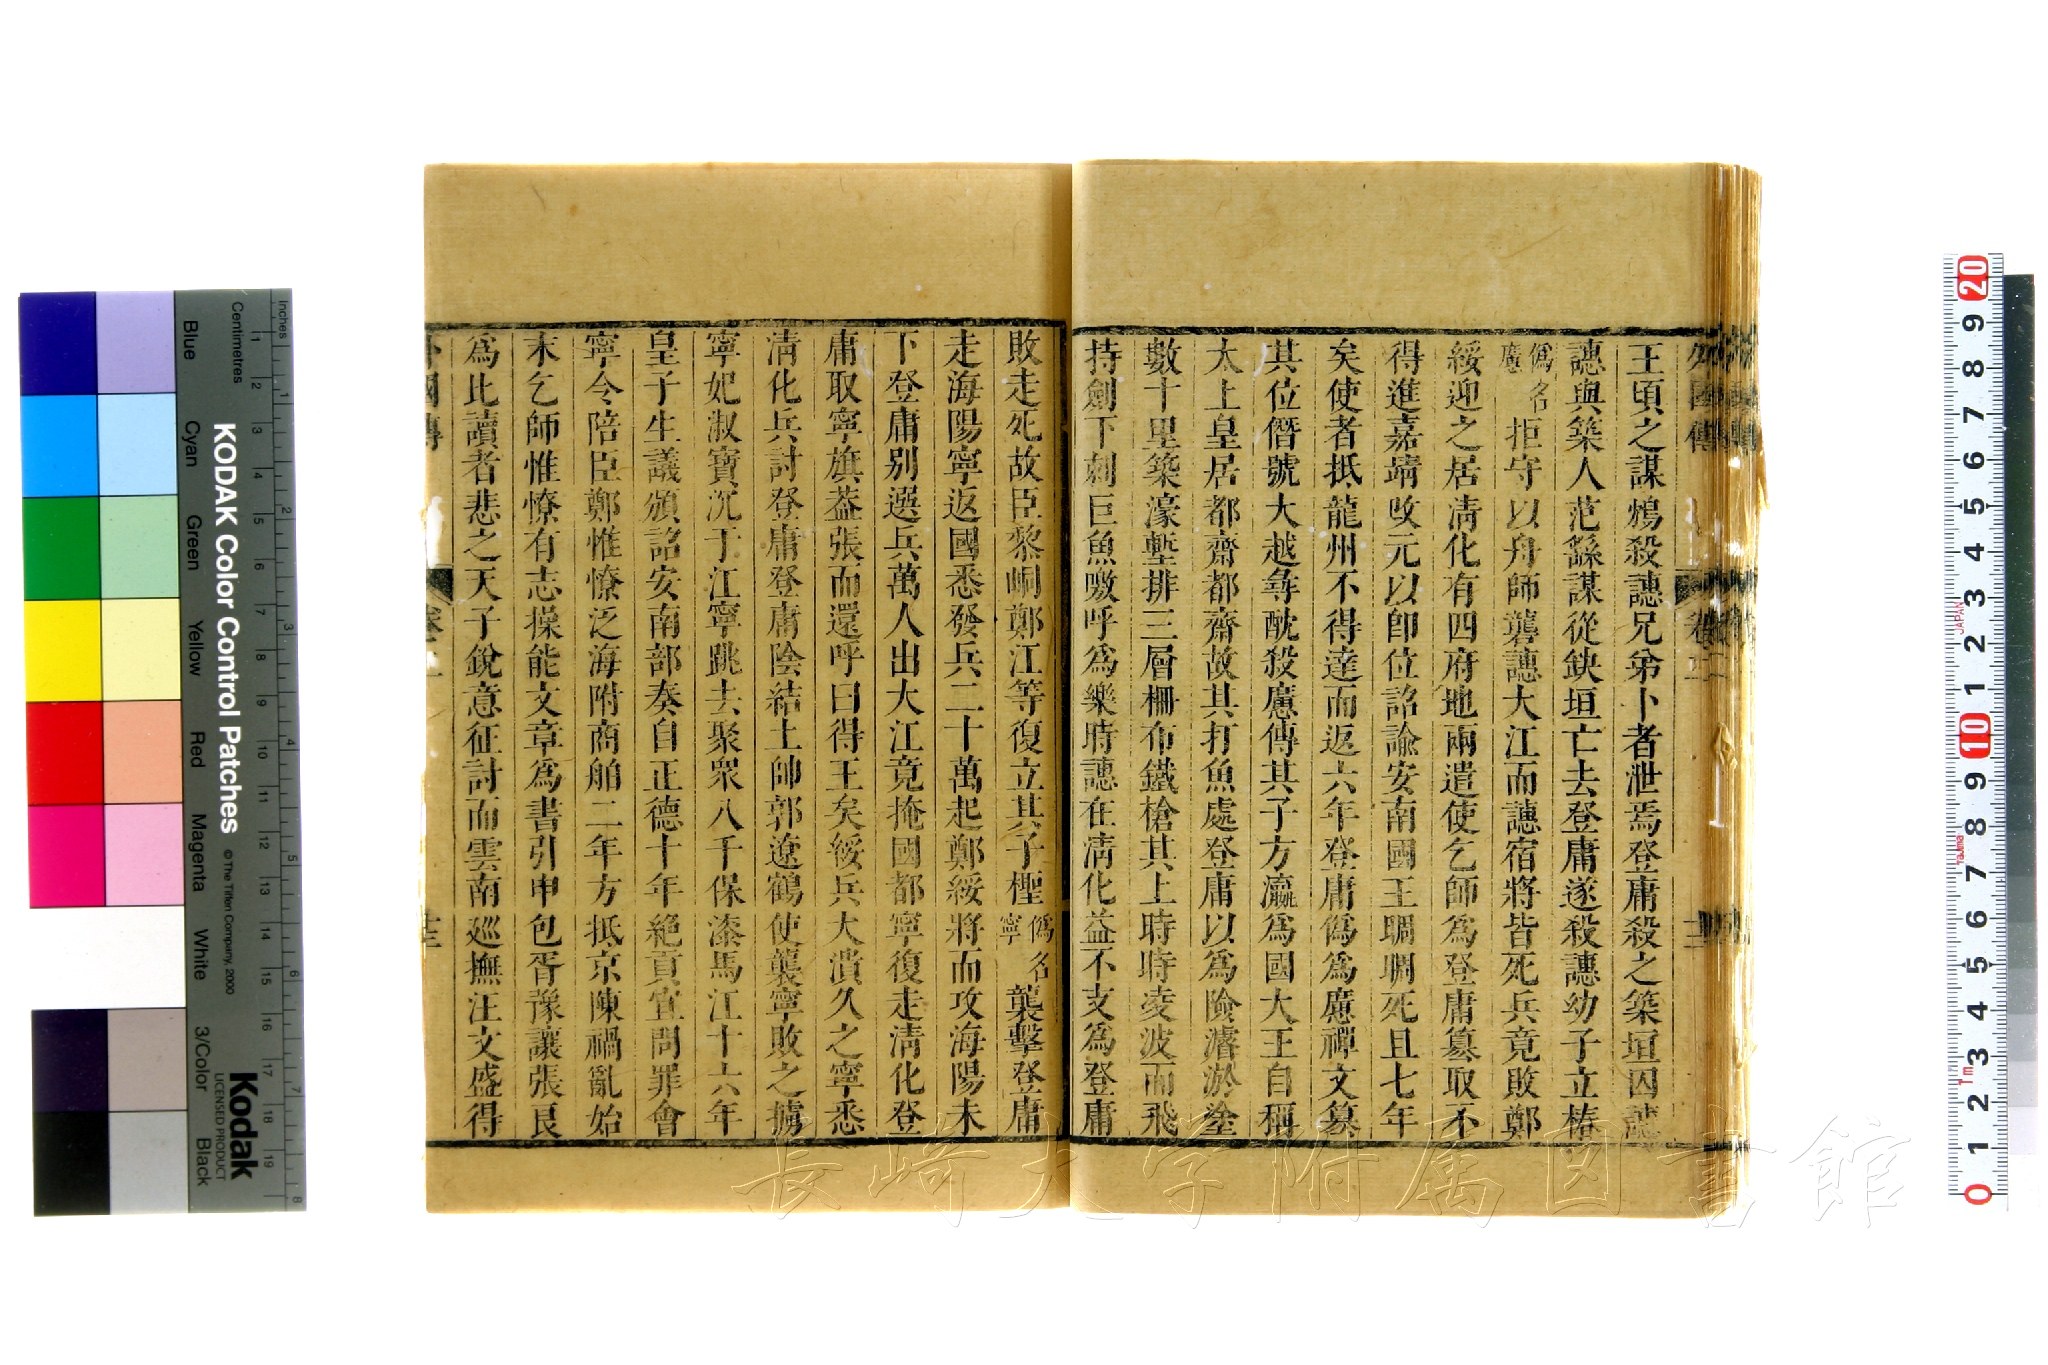 王頃之謀鴆殺譓兄弟卜者泄焉登庸殺之築垣囚譓
譓與築人范繇謀從缺垣亡去登庸遂殺譓幼子立椿
僞名
懬
拒守以舟師襲譓大江而譓宿將皆死兵竟敗鄭
綏迎之居清化有四府地兩遣使乞師為登庸篡取不
得進嘉靖改元以卽位詔諭安南國王晭晭死且七年
矣使者抵龍州不得達而返六年登庸僞為懬禪文篡
其位僭號大越尋酖殺懬傳其子方瀛為國大王自稱
太上皇居都齋都齋故其打魚處登庸以為險濬淤塗
數十里築濠塹排三層柵布鐵槍其上時時凌波而飛
持劍下刺巨魚噭呼為樂時譓在清化益不支為登庸
敗走死故臣黎峒鄭江等復立其子檉
僞名
寧
襲擊登庸
走海陽寧返國悉發兵二十萬起鄭綏將而攻海陽未
下登庸別選兵萬人出大江竟掩國都寧復走清化登
庸取寧旗葢張而還呼曰得王矣綏兵大潰久之寧悉
清化兵討登庸登庸陰結土帥郭遼鶴使襲寧敗之擄
寧妃淑寶沉于江寧跳去聚衆八千保漆馬江十六年
皇子生議頒詔安南部奏自正德十年絕貢宜問罪會
寧令陪臣鄭惟憭泛海附商舶二年方抵京陳禍亂始
末乞師惟憭有志操能文章為書引申包胥豫讓張良
為比讀者悲之天子銳意征討而雲南廵撫汪文盛得
外國傳
卷二
十三
長崎大学附属図書館
KODAK Color Control Patches
© The Tiffen Company, 2000
Kodak
LICENSED PRODUCT
Inches
Centimetres
Blue
Cyan
Green
Yellow
Red
Magenta
White
3/Color
Black
JAPAN
Tajima
1m